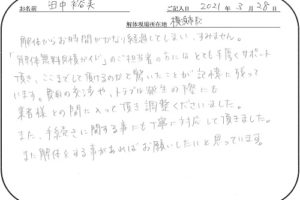 お名前 田中 裕美 ご記入日 2021年 3月 28日
解体現場所在地 横須賀
解体からお時間がかなり経過してしまい、すみません。
「解体無料見積ガイド」のご担当者の方にはとても厚くサポート
頂き、ここまでして頂けるのかと驚いたことが記憶に残って
います。費用の交渉や、トラブル発生の際にも
業者様との間に入って頂き調整くださいました。
また、手続きに関する事にも丁寧に対応して頂きました。
また解体をする事があればお願いしたいと思っています。